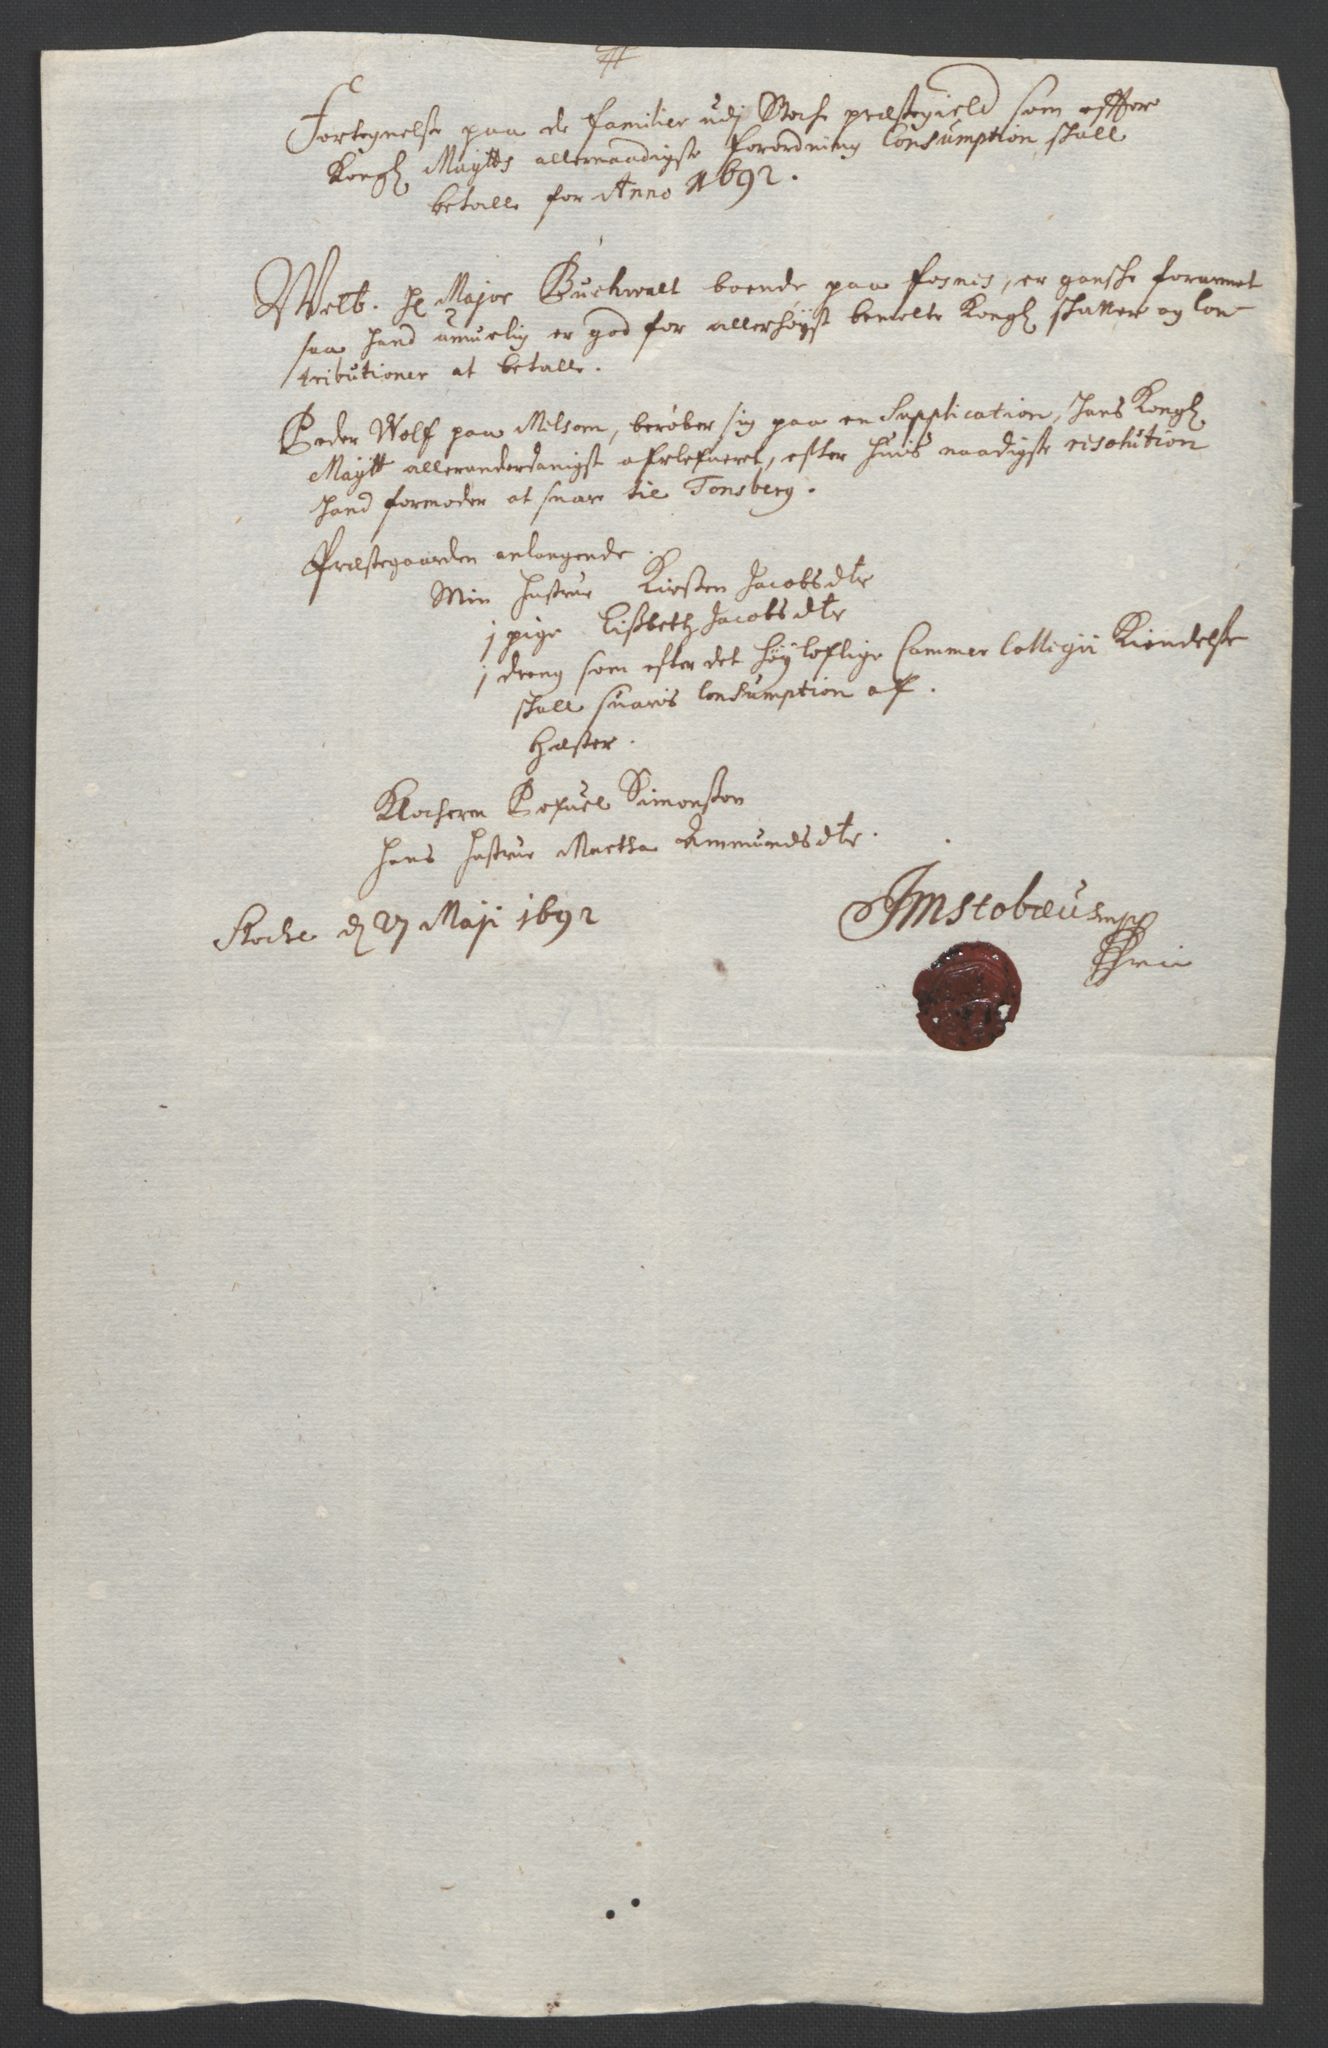 Fortegnelse paa de familier udj Stoche præstegield som effter
Kongl Maytts allernaadigste forordning Consumption skall
betalle for Anno 1692.
Welb. Hr Major Buchwalt boende paa fosnis, er gansche forarmet
saa hand umuelig er god for allerhøyst bemelte Kongl skatter og Con-
tributioner at betalle.
Peder Wolf paa Melsom, berøber sig paa en Supplication, Hans Kongl
Maytt allerunderdanigst ofrlefueret, efter huis naadigste resolution
hand formoder at suare til Tonsberg.
Præstegaarden anlangende.
Min hustrue Kirsten Jacobsdtr
1 pige Lisbeth Jacobsdtr
1 dreng som efter det høyloflige Cammer Collegii Kiendelse
skall suaris Consumption af.
Hæster.
Klocheren Pofuel Simonssøn
hans hustrue Martha Ammundsdtr.
Stoche d 27 Maji 1692
JMStobæus mpp